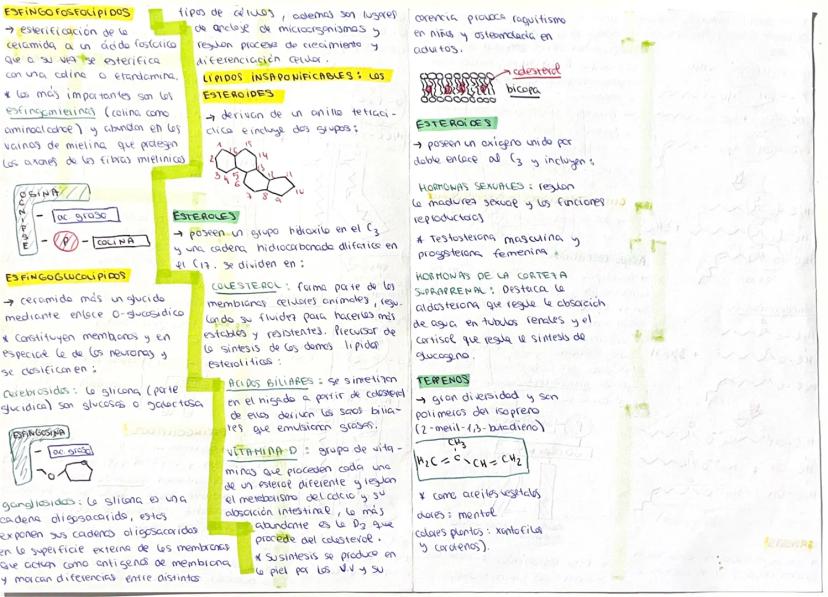 ESFINGOFOSFOLÍPIDOS
→ esterificación de la
ceramida a un ácido fosfórico
que a su vez se esterifica
con una colina o etanolamina.
* las más importantes son las
esfingomielinas (colina como
aminoalcohol) y abundan en las
vainas de mielina que protegen
los axones de las fibras mielínicas
OSINA
ESPINGO
ac. graso
P
COLINA
ESFINGOGLUCOLÍPIDOS
→ ceramida más un glúcido
mediante enlace O-glucosídico
* Constituyen membranas y en
especial la de las neuronas y
se clasifican en:
cerebrósidos: la glicona (parte
glucídica) son glucosas o galactosa
ESFINGOSINA
ac. graso
O
gangliósidos: la glicona es una
cadena oligosacárida, estos
exponen sus cadenas oligosacáridas
en la superficie externa de las membranas
que actúan como antígenos de membrana
y marcan diferencias entre distintos
tipos de células, además son lugares
de anclaje de microorganismos y
regulan procesos de crecimiento y
diferenciación celular.
LÍPIDOS INSAPONIFICABLES: LOS
ESTEROIDES
→ derivan de un anillo tetrací-
clico e incluye dos grupos:
ESTEROLES
→ poseen un grupo hidroxilo en el C3
y una cadena hidrocarbonada alifática en
el C17. Se dividen en:
COLESTEROL: forma parte de las
membranas celulares animales, regu-
lando su fluidez para hacerlas más
estables y resistentes. Precursor de
la síntesis de los demás lípidos
esteroliticos:
ÁCIDOS BILIARES: se sintetizan
en el hígado a partir de colesterol
de ellos derivan las sales bilia-
res que emulsionan grasas.
VITAMINA D: grupo de vita-
minas que proceden cada una
de un esterol diferente y regulan
el metabolismo del calcio y su
absorción intestinal, la más
abundante es la D2 que
procede del colesterol.
* Su síntesis se produce en
la piel por los V.V y su
carencia provoca raquitismo
en niños y osteomalacia en
adultos.
colesterol
bicapa
ESTEROIDES
→ poseen un oxígeno unido por
doble enlace al C3 y incluyen:
HORMONAS SEXUALES: regulan
la madurez sexual y las funciones
reproductoras
* Testosterona masculina y
progesterona femenina
HORMONAS DE LA CORTEZA
SUPRARRENAL: Destaca la
aldosterona que regula la absorción
de agua en túbulos renales y el
cortisol que regula la síntesis de
glucógeno.
TERPENOS
→ gran diversidad y son
polímeros del isopreno
(2-metil-1,3-butadieno)
CH3
H2C = C - CH = CH2
* como aceites vegetales
olores: mentol
colores plantas: xantofilas
y carotenos).